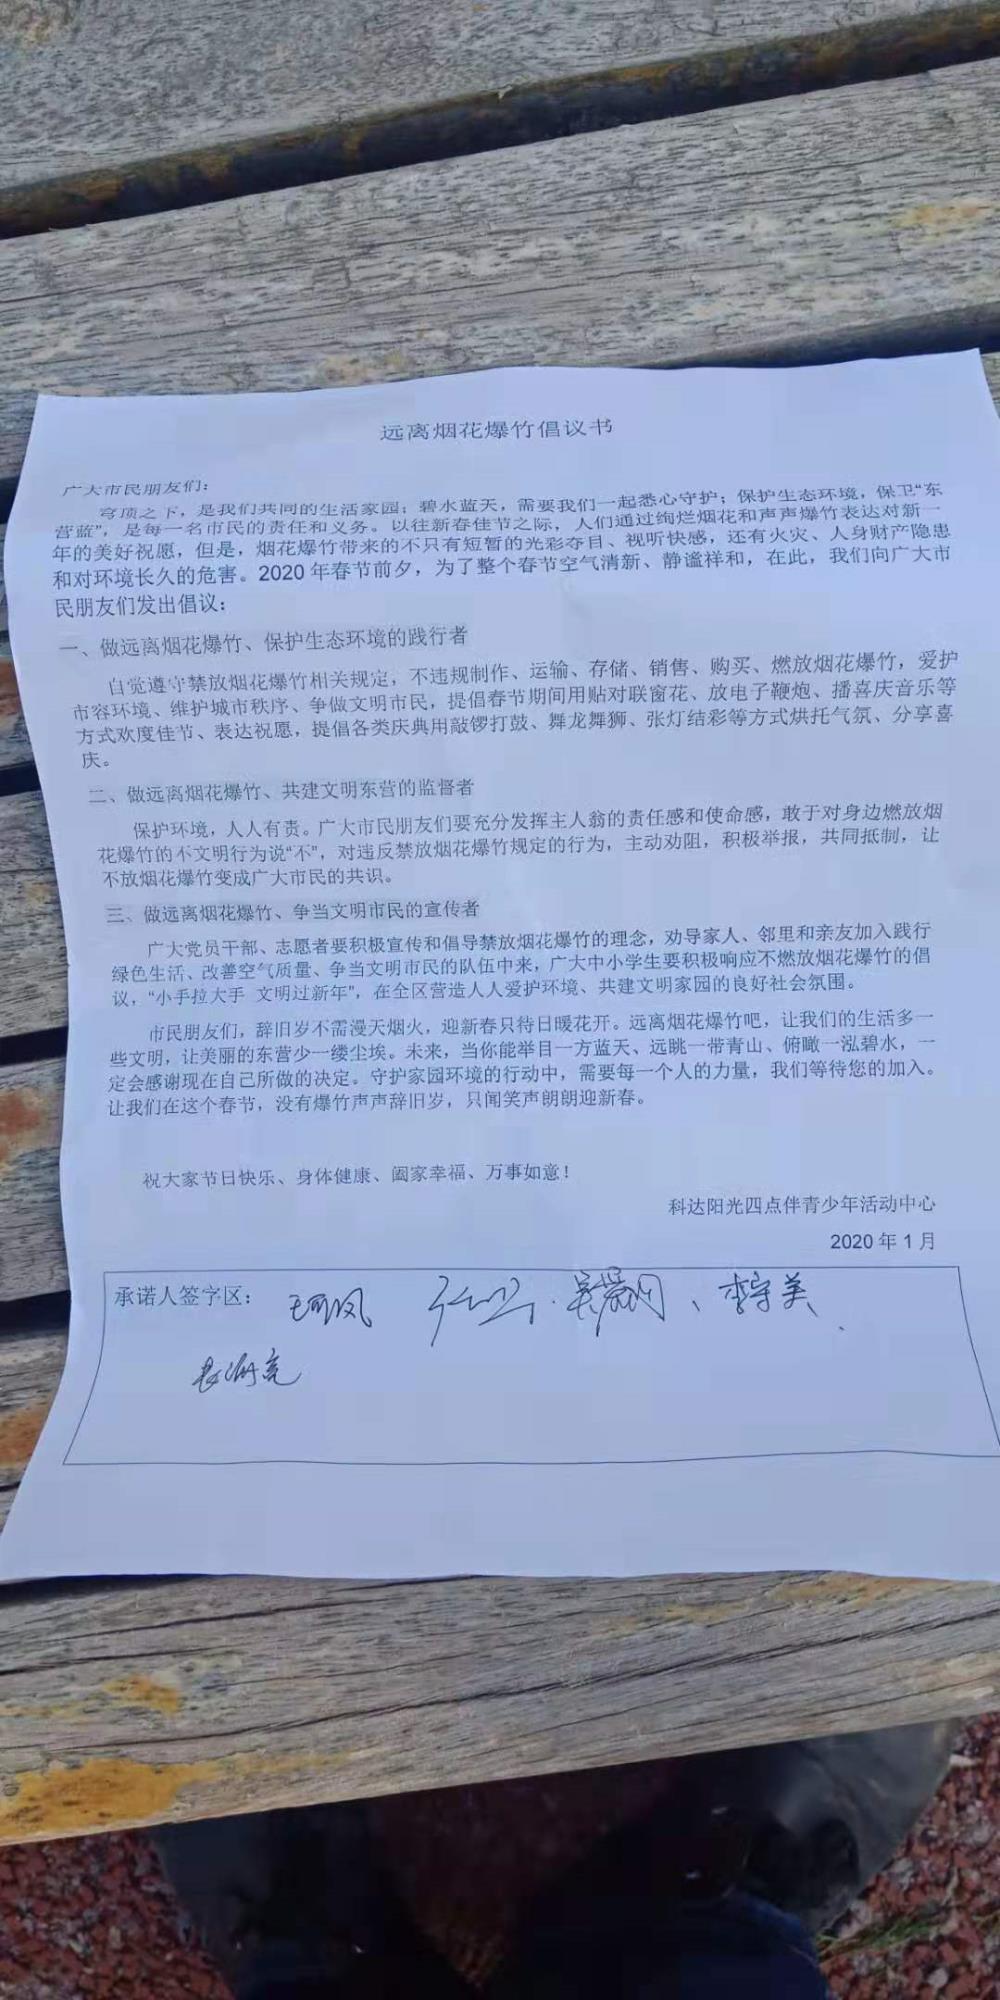 远离烟花爆竹倡议书
广大市民朋友们：
穹顶之下，是我们共同的生活家园；碧水蓝天，需要我们一起悉心守护；保护生态环境，保卫“东
营蓝”，是每一名市民的责任和义务。以往新春佳节之际，人们通过绚烂烟花和声声爆竹表达对新一
年的美好祝愿，但是，烟花爆竹带来的不只有短暂的光彩夺目、视听快感，还有火灾、人身财产隐患
和对环境长久的危害。2020年春节前夕，为了整个春节空气清新、静谧祥和，在此，我们向广大市
民朋友们发出倡议：
一、做远离烟花爆竹、保护生态环境的践行者
自觉遵守禁放烟花爆竹相关规定，不违规制作、运输、存储、销售、购买、燃放烟花爆竹，爱护
市容环境、维护城市秩序、争做文明市民，提倡春节期间用贴对联窗花、放电子鞭炮、播喜庆音乐等
方式欢度佳节、表达祝愿，提倡各类庆典用敲锣打鼓、舞龙舞狮、张灯结彩等方式烘托气氛、分享喜
庆。
二、做远离烟花爆竹、共建文明东营的监督者
保护环境，人人有责。广大市民朋友们要充分发挥主人翁的责任感和使命感，敢于对身边燃放烟
花爆竹的不文明行为说“不”，对违反禁放烟花爆竹规定的行为，主动劝阻，积极举报，共同抵制，让
不放烟花爆竹变成广大市民的共识。
三、做远离烟花爆竹、争当文明市民的宣传者
广大党员干部、志愿者要积极宣传和倡导禁放烟花爆竹的理念，劝导家人、邻里和亲友加入践行
绿色生活、改善空气质量、争当文明市民的队伍中来，广大中小学生要积极响应不燃放烟花爆竹的倡
议，“小手拉大手 文明过新年”，在全区营造人人爱护环境、共建文明家园的良好社会氛围。
市民朋友们，辞旧岁不需漫天烟火，迎新春只待日暖花开。远离烟花爆竹吧，让我们的生活多一
些文明，让美丽的东营少一缕尘埃。未来，当你能举目一方蓝天、远眺一带青山、俯瞰一泓碧水，一
定会感谢现在自己所做的决定。守护家园环境的行动中，需要每一个人的力量，我们等待您的加入。
让我们在这个春节，没有爆竹声声辞旧岁，只闻笑声朗朗迎新春。
祝大家节日快乐、身体健康、阖家幸福、万事如意！
科达阳光四点伴青少年活动中心
2020年1月
承诺人签字区： 李守美